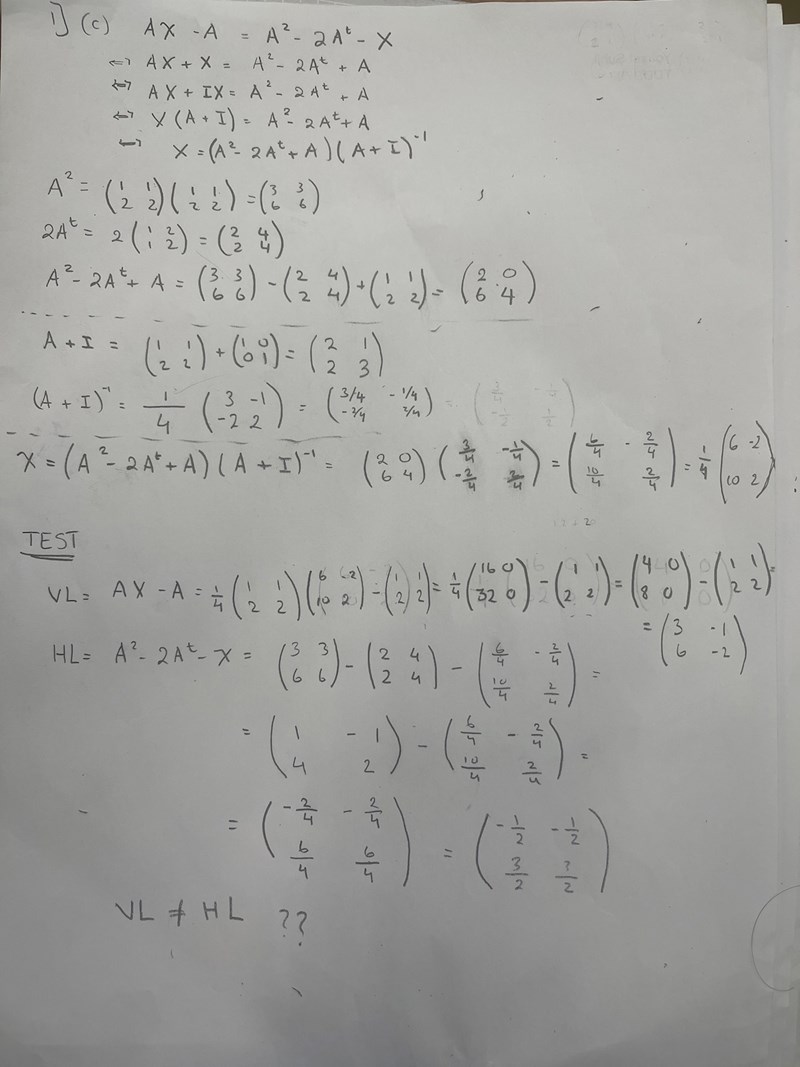 1] (c) AX - A = A² - 2Aᵗ - X
⇔ AX + X = A² - 2Aᵗ + A
⇔ AX + IX = A² - 2Aᵗ + A
⇔ X (A + I) = A² - 2Aᵗ + A
⇔ X = (A² - 2Aᵗ + A) (A + I)⁻¹
A² = (1 1; 2 2) (1 1; 2 2) = (3 3; 6 6)
2Aᵗ = 2 (1 2; 1 2) = (2 4; 2 4)
A² - 2Aᵗ + A = (3 3; 6 6) - (2 4; 2 4) + (1 1; 2 2) = (2 0; 6 4)
A + I = (1 1; 2 2) + (1 0; 0 1) = (2 1; 2 3)
(A + I)⁻¹ = 1/4 (3 -1; -2 2) = (3/4 -1/4; -2/4 2/4)
X = (A² - 2Aᵗ + A) (A + I)⁻¹ = (2 0; 6 4) (3/4 -1/4; -2/4 2/4) = (6/4 -2/4; 10/4 2/4) = 1/4 (6 -2; 10 2)
TEST
VL = AX - A = 1/4 (1 1; 2 2) (6 -2; 10 2) - (1 1; 2 2) = 1/4 (16 0; 32 0) - (1 1; 2 2) = (4 0; 8 0) - (1 1; 2 2) =
= (3 -1; 6 -2)
HL = A² - 2Aᵗ - X = (3 3; 6 6) - (2 4; 2 4) - (6/4 -2/4; 10/4 2/4) =
= (1 -1; 4 2) - (6/4 -2/4; 10/4 2/4) =
= (-2/4 -2/4; 6/4 6/4) = (-1/2 -1/2; 3/2 3/2)
VL ≠ HL ??